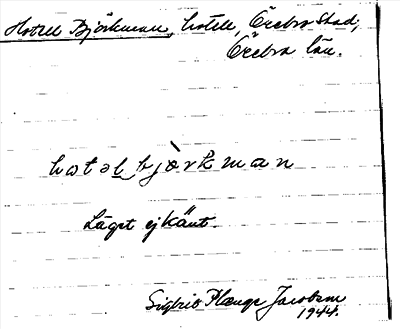 Hotell Björkman, hotell, Örebro Stad,
Örebro län.
hotəl bjòrkman
Läget ej känt.
Sigfrid Plænge Jacobson
1944.